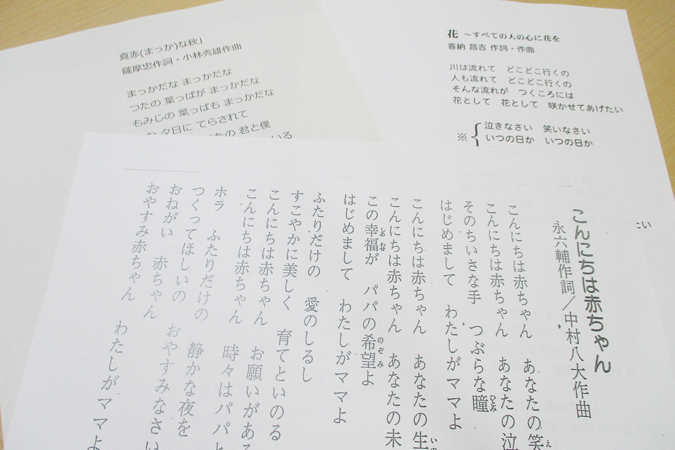 真赤(まっか)な秋」
薩摩忠作詞・小林秀雄作曲
まっかだな まっかだな
つたの 葉っぱが まっかだな
もみじの 葉っぱも まっかだな
夕日に てらされて
君と僕
いる
花 ～すべての人の心に花を
喜納 昌吉 作詞・作曲
川は流れて どこどこ行くの
人も流れて どこどこ行くの
そんな流れが つくころには
花として 花として 咲かせてあげたい
※{泣きなさい 笑いなさい
いつの日か いつの日か
たい
こんにちは赤ちゃん
永六輔作詞／中村八大作曲
こんにちは赤ちゃん あなたの笑え
こんにちは赤ちゃん あなたの泣
そのちいさな手 つぶらな瞳ひとみ
はじめまして わたしがママよ
こんにちは赤ちゃん あなたの生
こんにちは赤ちゃん あなたの未
この幸福しあわせが パパの希望のぞみよ
はじめまして わたしがママよ
ふたりだけの 愛のしるし
すこやかに美しく 育てといのる
こんにちは赤ちゃん お願いがある
こんにちは赤ちゃん 時々はパパと
ホラ ふたりだけの 静かな夜を
つくってほしいの おやすみなさい
おねがい 赤ちゃん
おやすみ赤ちゃん わたしがママよ